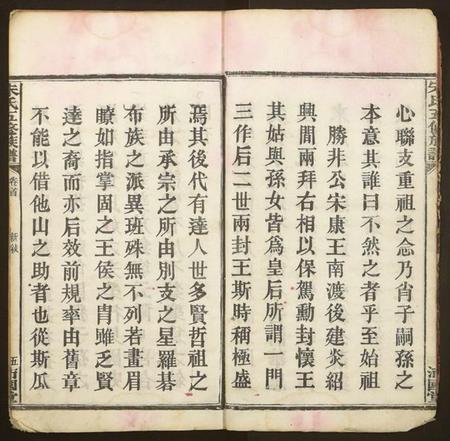 心聯支重祖之念乃肖子嗣孫之
本意其誰曰不然之者乎至始祖
勝非公宋康王南渡後建炎紹
興間兩拜右相以保駕動封懷王
其姑與孫女皆爲皇后所謂一門
三作后二世兩封王斯時稱極盛
焉其後代有達人世多賢哲祖之
所由承宗之所由別支之星羅碁
布族之派異班殊無不列若畫眉
瞭如指掌固之王侯之胄雖乏賢
達之裔而亦后效前規率由舊章
不能以借他山之助者也從斯瓜
朱氏五修族譜
卷首
五